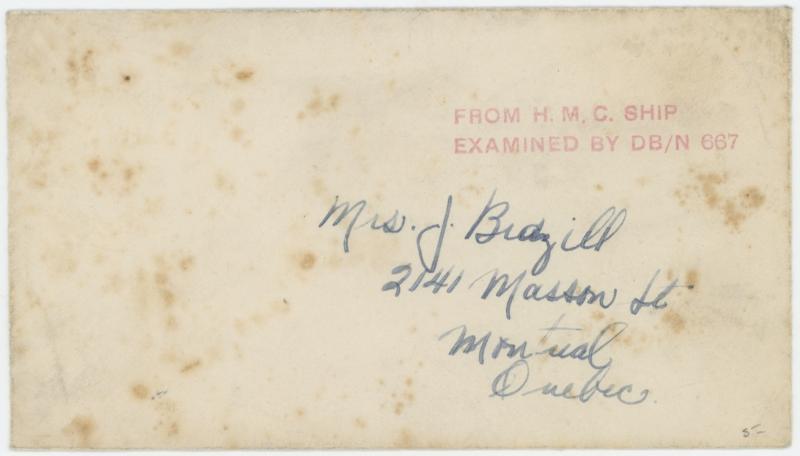 FROM H. M. C. SHIP
EXAMINED BY DB/N 667
Mrs. J. Brazill
2141 Masson St
Montreal
Quebec.
5-